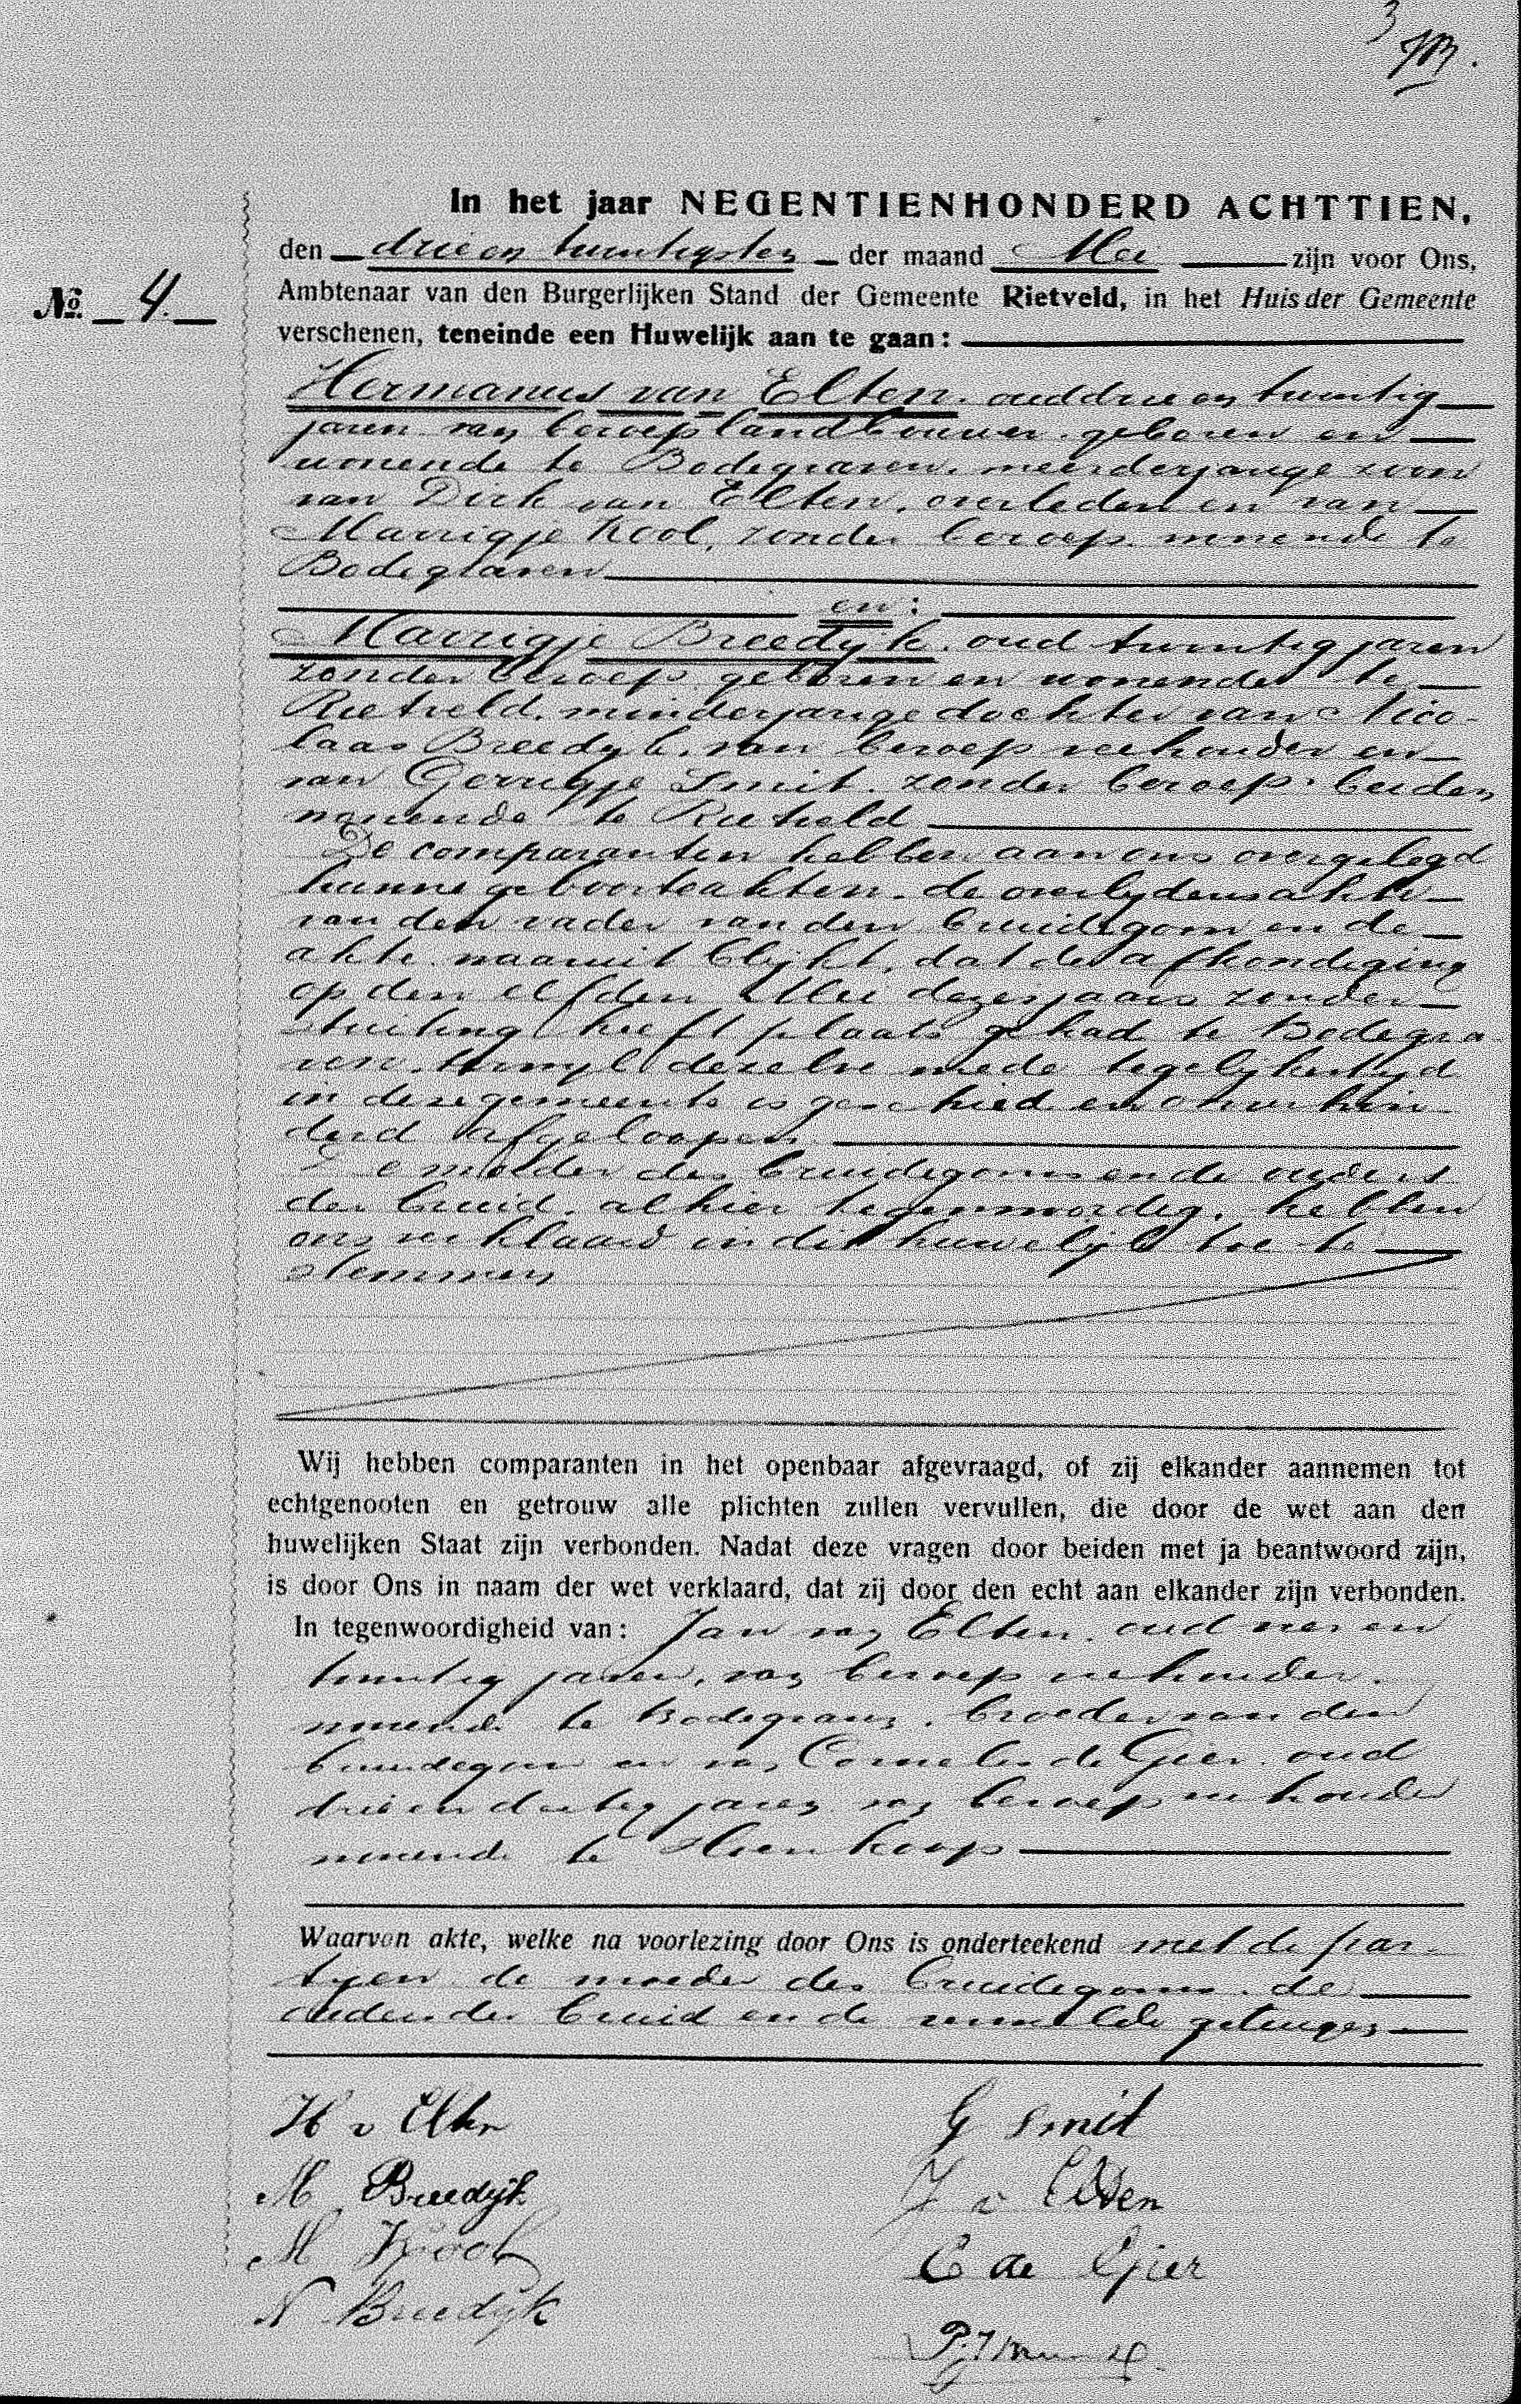 3
In het jaar NEGENTIENHONDERD ACHTTIEN,
den drieen twintigsten der maand Mei zijn voor Ons,
Ambtenaar van den Burgerlijken Stand der Gemeente Rietveld, in het Huis der Gemeente
No. 4.
verschenen, teneinde een Huwelijk aan te gaan:
Hermanus van Elten. oud drie en twintig
jaren van beroep landbouwer. geboren en
wonende te Bodegraven. meerderjarige zoon
van Dirk van Elten. overleden en van
Marrigje Kool, zonder beroep. wonende te
Bodegraven
en:
Marrigje Breedijk. oud twintig jaren
zonder beroep. geboren en wonende te
Rietveld. minderjarige dochter van Nico-
laas Breedijk. van beroep veehouder en
van Gerrigje Smit. zonder beroep. beiden
wonende te Rietveld
De comparanten hebben aan ons overgelegd
hunne geboorteakten. de overlydensakte
van den vader van den bruidegom en de
akte waaruit blijkt, dat de afkondiging
op den elfden Mei dezes jaars zonder
stuiting heeft plaats gehad te Bodegra
ven. terwyl dezelve mede tegelijkertyd
in deze gemeente is geschied en onverhin
derd afgeloopen.
De moeder des bruidegoms en de ouders
der bruid. alhier tegenwoordig. hebben
ons verklaard in dit huwelijk toe te
stemmen
Wij hebben comparanten in het openbaar afgevraagd, of zij elkander aannemen tot
echtgenooten en getrouw alle plichten zullen vervullen, die door de wet aan den
huwelijken Staat zijn verbonden. Nadat deze vragen door beiden met ja beantwoord zijn,
is door Ons in naam der wet verklaard, dat zij door den echt aan elkander zijn verbonden.
In tegenwoordigheid van: Jan van Elten. oud vier en
twintig jaren, van beroep veehouder.
wonende te Bodegraven. broeder van den
bruidegom en van Cornelis de Gier. oud
drie en dertig jaren van beroep veehouder
wonende te Hoenkoop
Waarvan akte, welke na voorlezing door Ons is onderteekend met de par-
tyen de moeder des bruidegoms. de
ouders der bruid en de vermelde getuigen
H v Elten
G Smit
M Breedijk
J v Elten
M Kool
C de Gier
N Breedijk